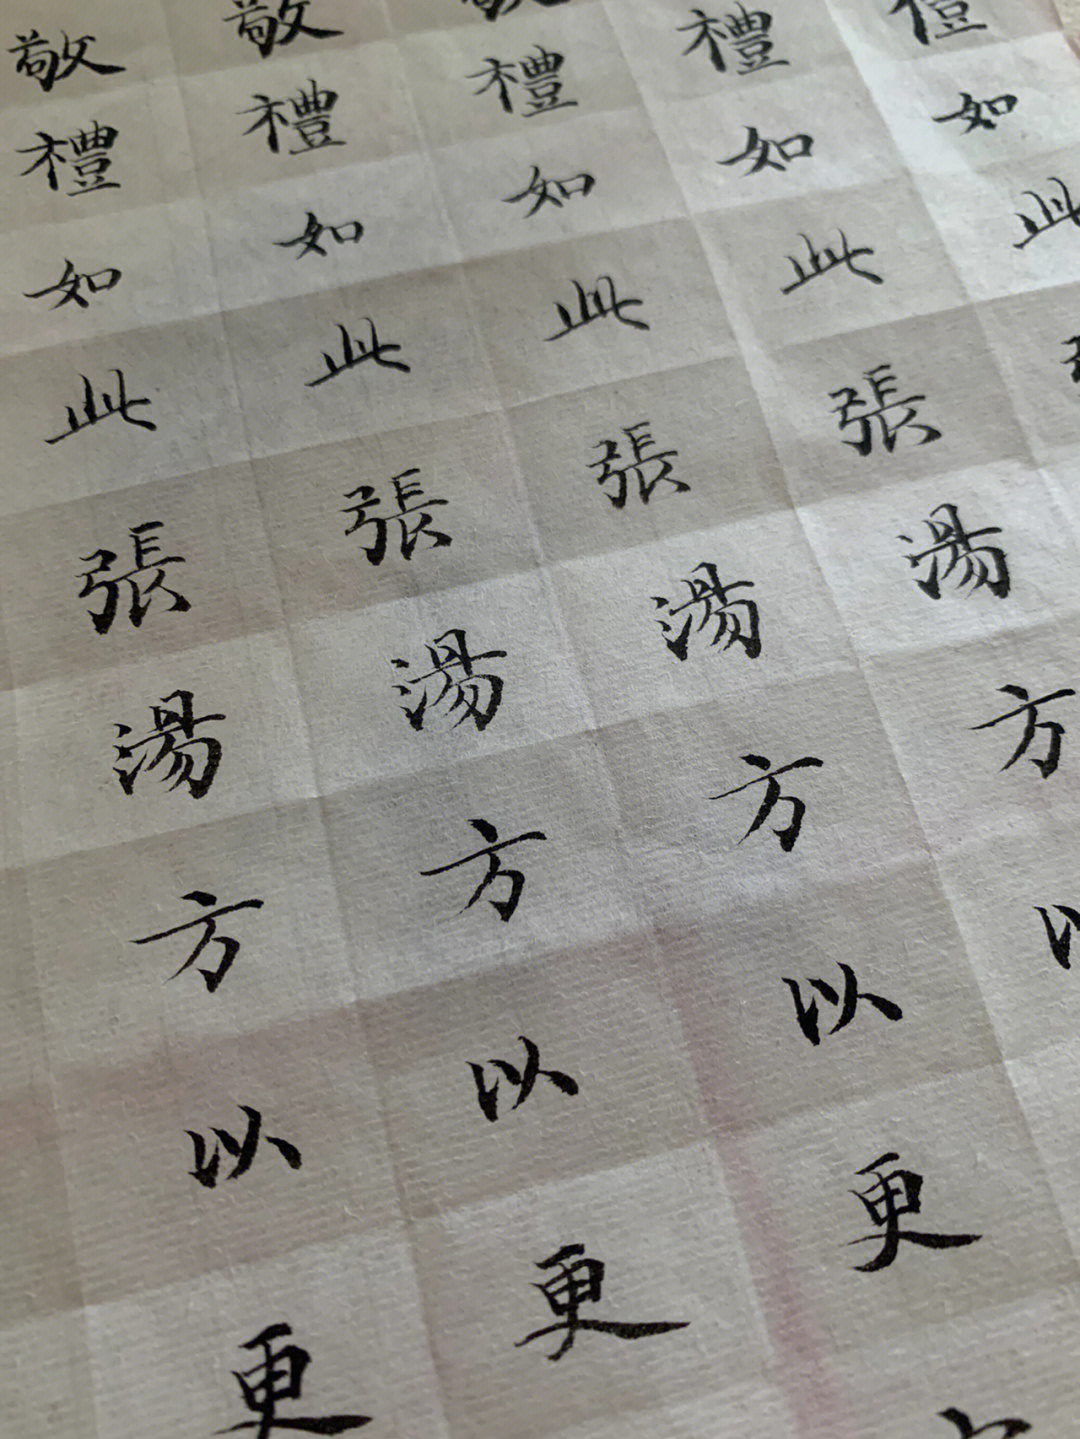 禮如此
禮如此張湯方
禮如此張湯方以更
敬禮如此張湯方以更
敬禮如此張湯方以更